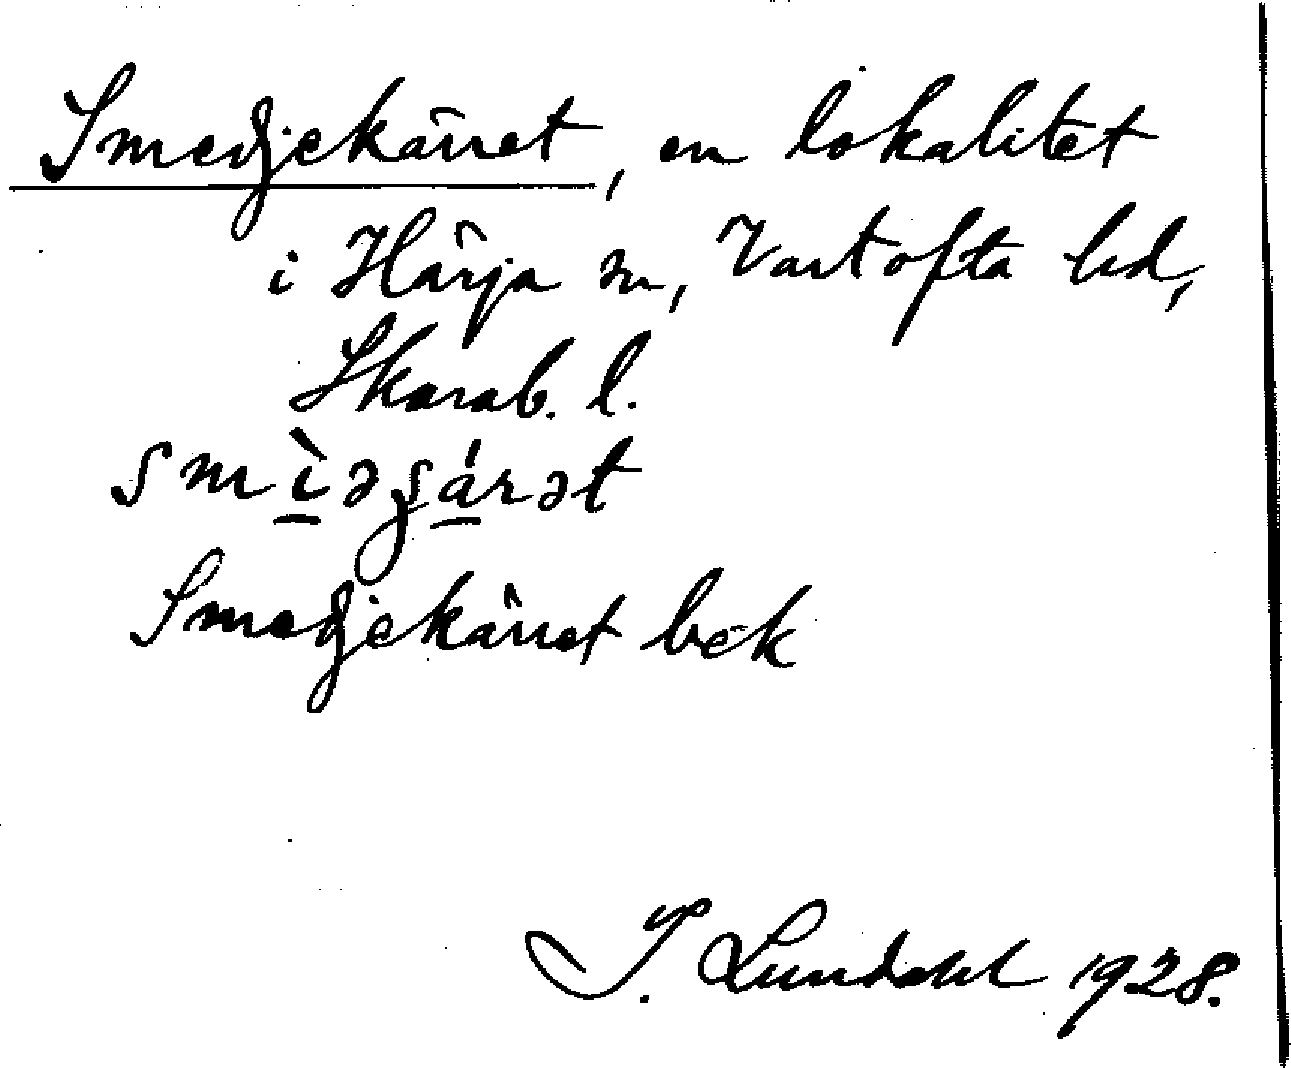 Smedjekärret, en lokalitet
i Härja sn, Vartofta hd,
Skarab. l.
Smedjekärret bek
I. Lundahl 1928.